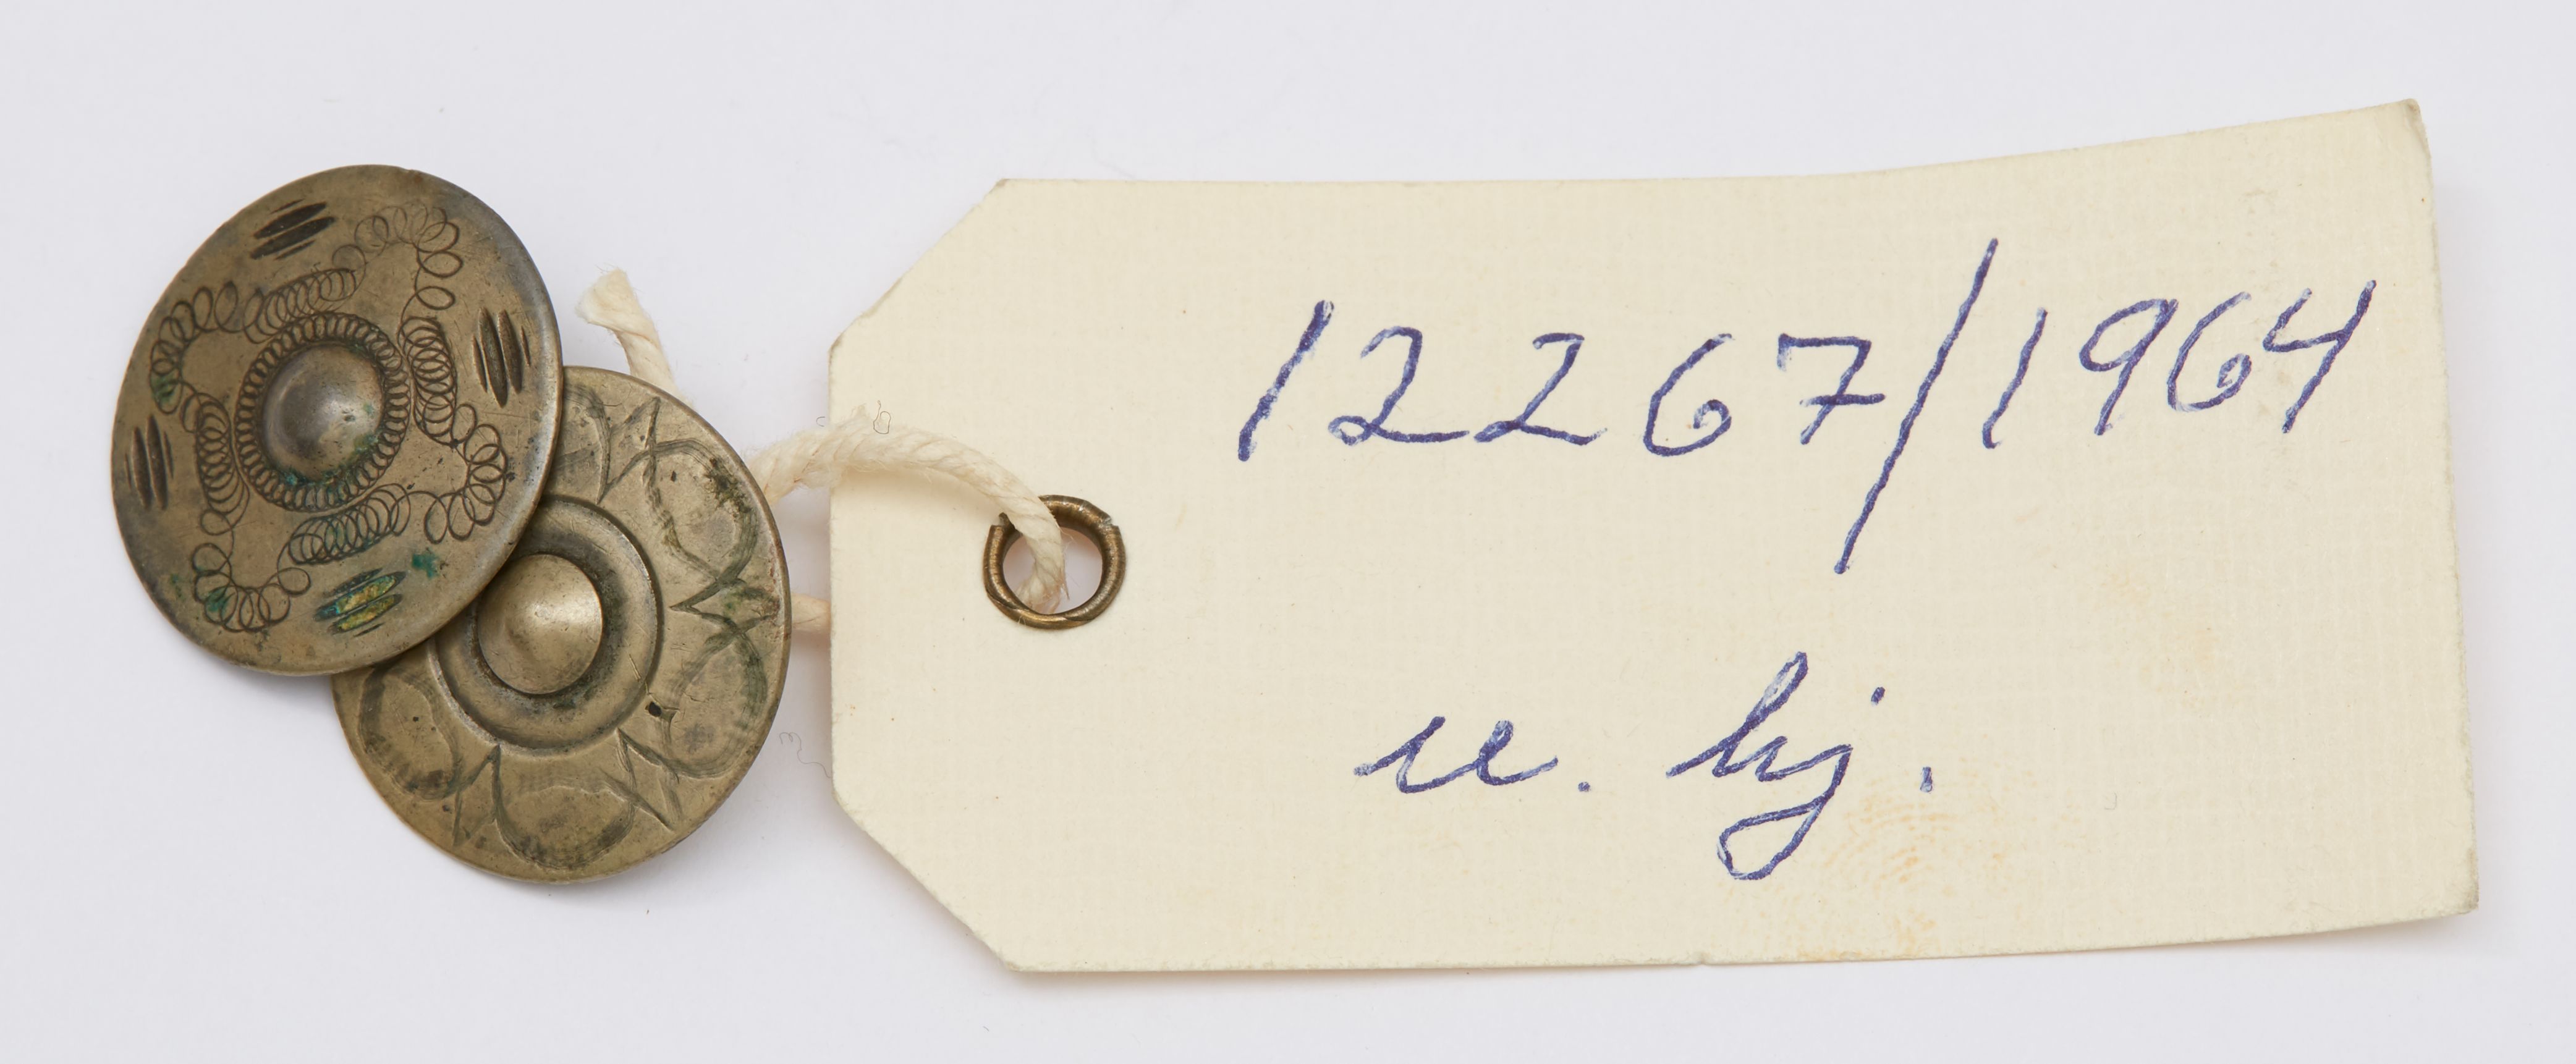 12267/1964
u. hj.